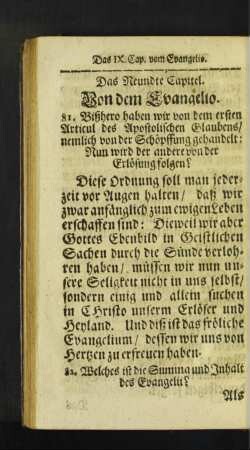 Das IX. Cap. vom Evangelio.
Das Neundte Capitel.
Von dem Evangelio.
81. Bißhero haben wir von dem ersten
Articul des Apostolischen Glaubens/
nemlich von der Schöpffung gehandelt:
Nun wird der andere von der
Erlösung folgen?
Diese Ordnung soll man jeder-
zeit vor Augen halten/ daß wir
zwar anfänglich zum ewigen Leben
erschaffen sind: Dieweil wir aber
Gottes Ebenbild in Geistlichen
Sachen durch die Sünde verloh-
ren haben/ müssen wir nun un-
sere Seligkeit nicht in uns selbst/
sondern einig und allein suchen
in CHristo unserm Erlöser und
Heyland. Und diß ist das fröliche
Evangelium/ dessen wir uns von
Hertzen zu erfreuen haben.
82. Welches ist die Summa und Inhalt
des Evangelii?
Als